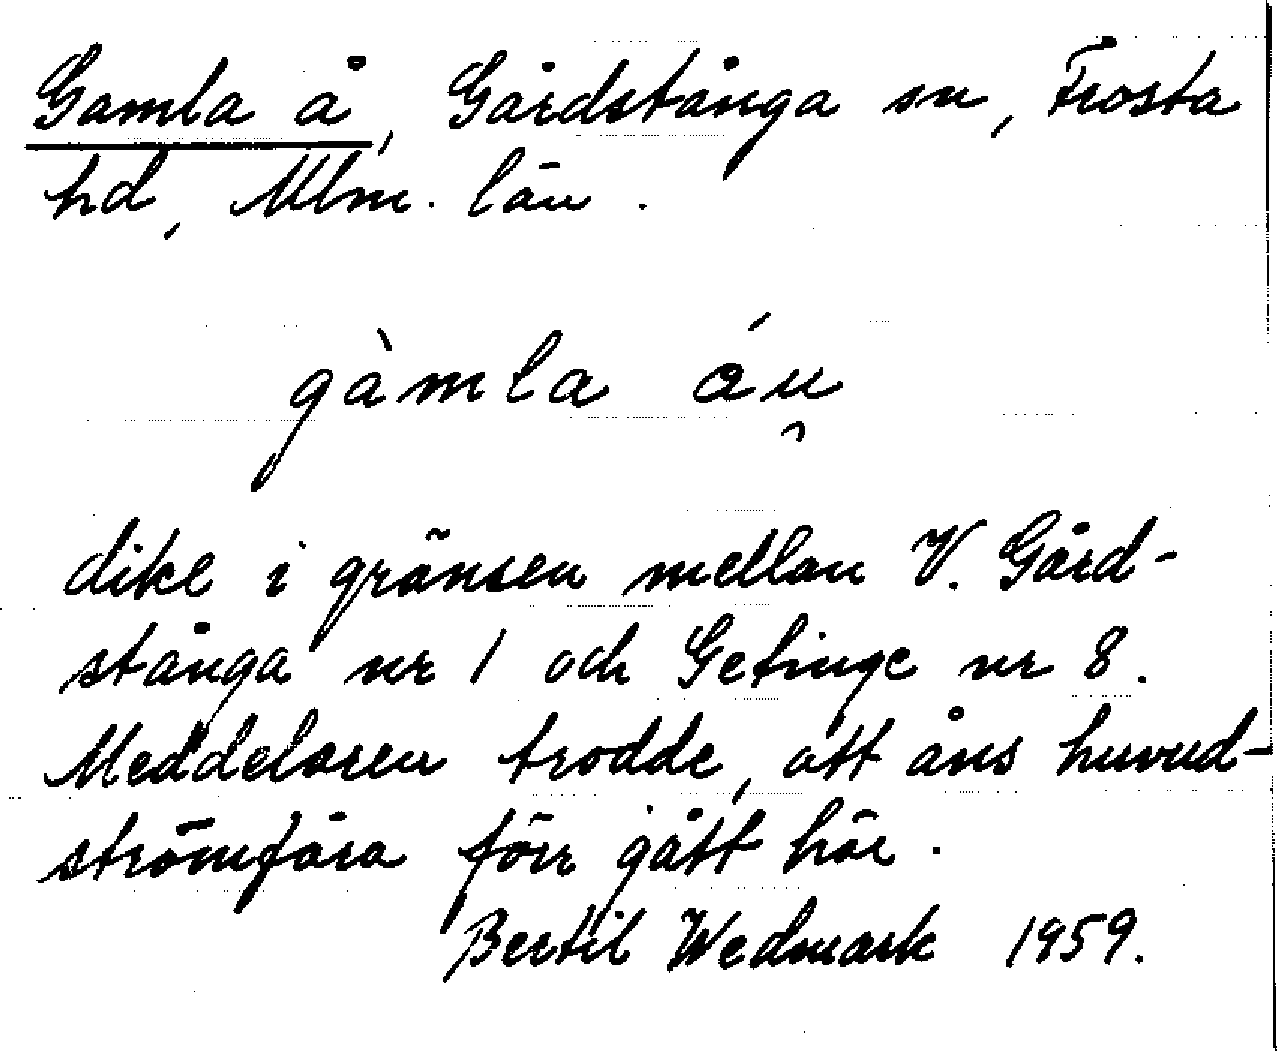 Gamla å, Gårdstånga sn, Frosta
hd, Mlm. län.
gàmla áu̯
dike i gränsen mellan V. Gård-
stånga nr 1 och Getinge nr 8.
Meddelaren trodde, att åns huvud-
strömfåra förr gått här.
Bertil Wedmark 1959.